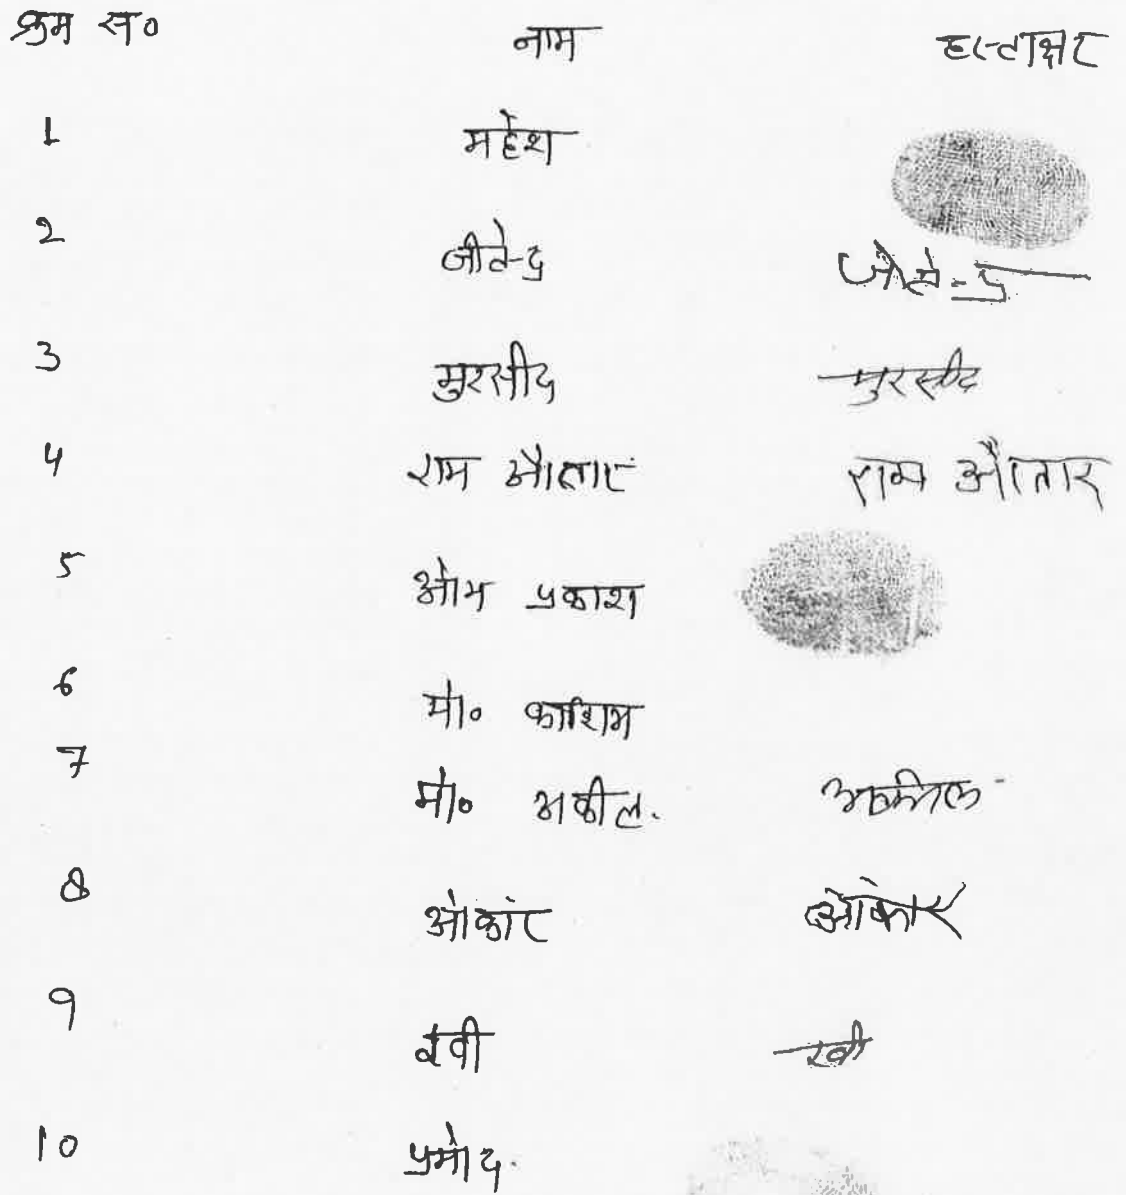 क्रम स० नाम हस्ताक्षर
1 महेश
2 जीतेन्द्र जीतेन्द्र
3 मुरसीद मुरसीद
4 राम औतार राम औतार
5 ओम प्रकाश
6 मो० काशिम
7 मो० अकील. अकील
8 ओकार ओकार
9 रवी रवी
10 प्रमोद.